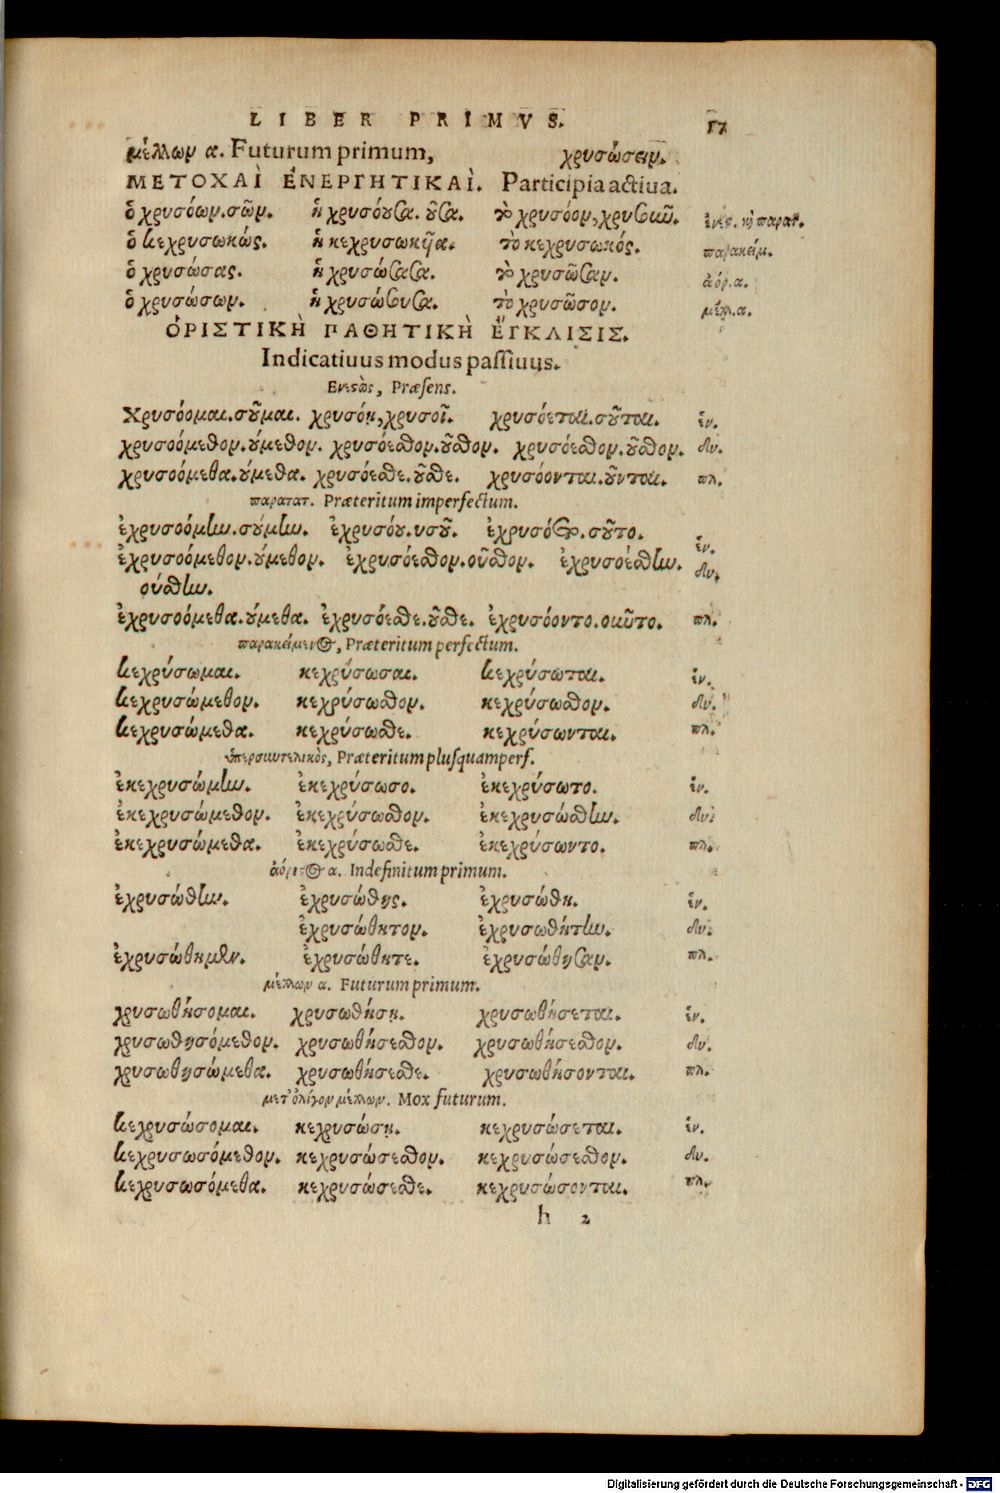 LIBER PRIMVS. 57
μέλλων α. Futurum primum, χρυσώσειν.
ΜΕΤΟΧΑῚ ἘΝΕΡΓΗΤΙΚΑΊ. Participia actiua.
ὁ χρυσόων.σῶν. ἡ χρυσόουσα. οῦσα. τὸ χρυσόον, χρυσοῦν. ἐνεσ. κὶ παρατ.
ὁ κεχρυσωκώς. ἡ κεχρυσωκῦα. τὸ κεχρυσωκός. παρακείμ.
ὁ χρυσώσας. ἡ χρυσώσασα. τὸ χρυσῶσαν. ἀόρ.α.
ὁ χρυσώσων. ἡ χρυσώσουσα. τὸ χρυσῶσον. μέλλ.α.
ὉΡΙΣΤΙΚῊ ΠΑΘΗΤΙΚῊ ἜΓΚΛΙΣΙΣ.
Indicatiuus modus passiuus.
Ενεστὼς, Præsens.
Χρυσόομαι.σοῦμαι. χρυσόῃ, χρυσοῖ. χρυσόεται.σοῦται. ἑν.
χρυσοόμεθον.ούμεθον. χρυσόεσθον.οῦσθον. χρυσόεσθον.οῦσθον. δυ.
χρυσοόμεθα.ούμεθα. χρυσόεσθε.οῦσθε. χρυσόονται.οῦνται. πλ.
παρατατ. Præteritum imperfectum.
ἐχρυσοόμην.σούμην. ἐχρυσόου.υσοῦ. ἐχρυσόετο.σοῦτο. ἑν.
ἐχρυσοόμεθον.ούμεθον. ἐχρυσόεσθον.οῦσθον. ἐχρυσοέσθην. δυ.
ούσθην.
ἐχρυσοόμεθα.ούμεθα. ἐχρυσόεσθε.οῦσθε. ἐχρυσόοντο.οῦντο. πλ.
παρακείμενος, Præteritum perfectum.
κεχρύσωμαι. κεχρύσωσαι. κεχρύσωται. ἑν.
κεχρυσώμεθον. κεχρύσωσθον. κεχρύσωσθον. δυ.
κεχρυσώμεθα. κεχρύσωσθε. κεχρύσωνται. πλ.
ὑπερσυντελικὸς, Præteritum plusquamperf.
ἐκεχρυσώμην. ἐκεχρύσωσο. ἐκεχρύσωτο. ἑν.
ἐκεχρυσώμεθον. ἐκεχρύσωσθον. ἐκεχρυσώσθην. δυ.
ἐκεχρυσώμεθα. ἐκεχρύσωσθε. ἐκεχρύσωντο. πλ.
ἀόριστος α. Indefinitum primum.
ἐχρυσώθην. ἐχρυσώθης. ἐχρυσώθη. ἑν.
ἐχρυσώθητον. ἐχρυσωθήτην. δυ.
ἐχρυσώθημεν. ἐχρυσώθητε. ἐχρυσώθησαν. πλ.
μέλλων α. Futurum primum.
χρυσωθήσομαι. χρυσωθήσῃ. χρυσωθήσεται. ἑν.
χρυσωθησόμεθον. χρυσωθήσεσθον. χρυσωθήσεσθον. δυ.
χρυσωθησώμεθα. χρυσωθήσεσθε. χρυσωθήσονται. πλ.
μετ' ὀλίγον μέλλων. Mox futurum.
κεχρυσώσομαι. κεχρυσώσῃ. κεχρυσώσεται. ἑν.
κεχρυσωσόμεθον. κεχρυσώσεσθον. κεχρυσώσεσθον. δυ.
κεχρυσωσόμεθα. κεχρυσώσεσθε. κεχρυσώσονται. πλ.
h 2
Digitalisierung gefördert durch die Deutsche Forschungsgemeinschaft - DFG